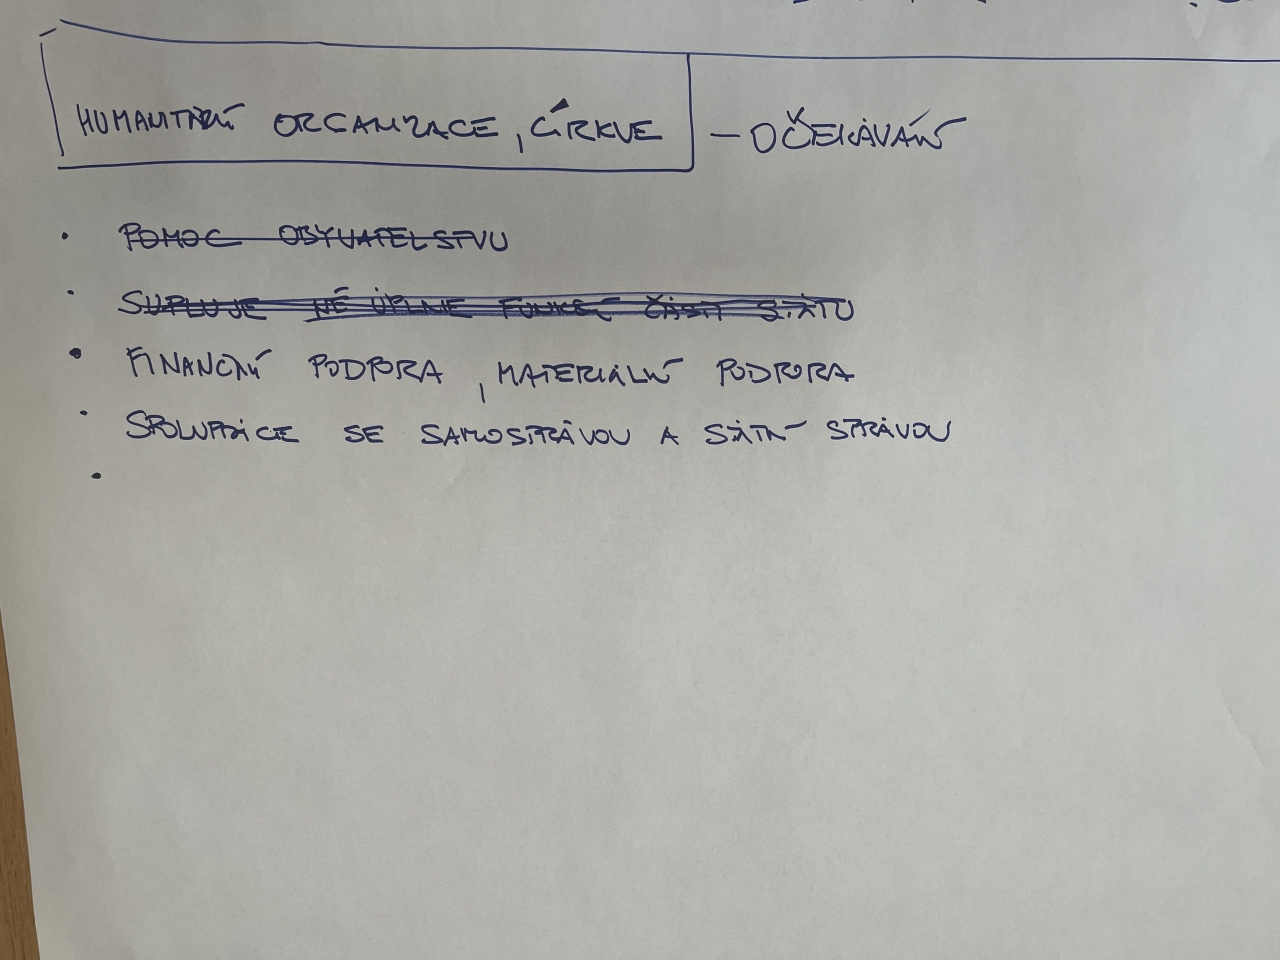 HUMANITÁRNÍ ORGANIZACE, CÍRKVE – OČEKÁVÁNÍ
• POMOC OBYVATELSTVU
• SUPLUJE NĚ ÚPLNĚ FUNKCI ČÁSTI STÁTU
• FINANČNÍ PODPORA, MATERIÁLNÍ PODPORA
• SPOLUPRÁCE SE SAMOSPRÁVOU A STÁTNÍ SPRÁVOU
•